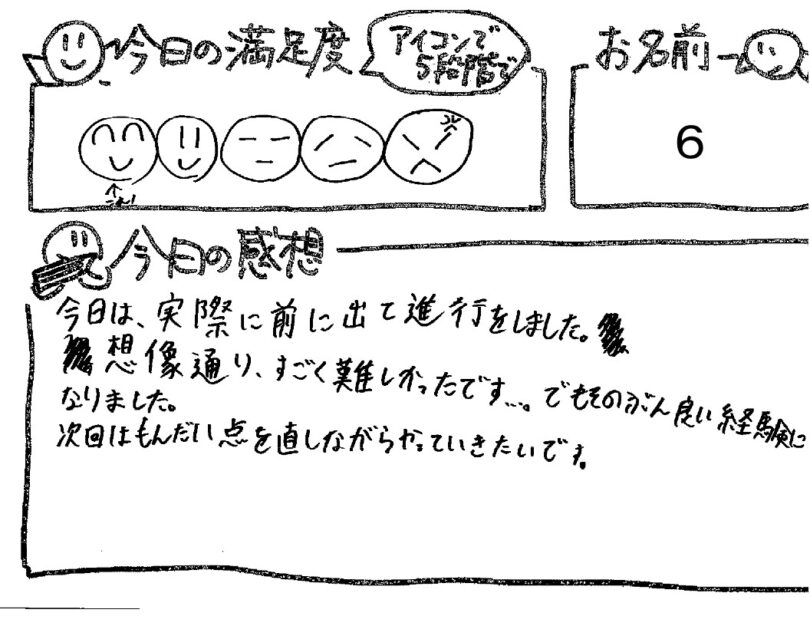 今日の満足度
アイコンで
5段階で
お名前
6
これ!
今日の感想
今日は、実際に前に出て進行をしました。
想像通り、すごく難しかったです...。でもそのぶん良い経験に
なりました。
次回はもんだい点を直しながらやっていきたいです。